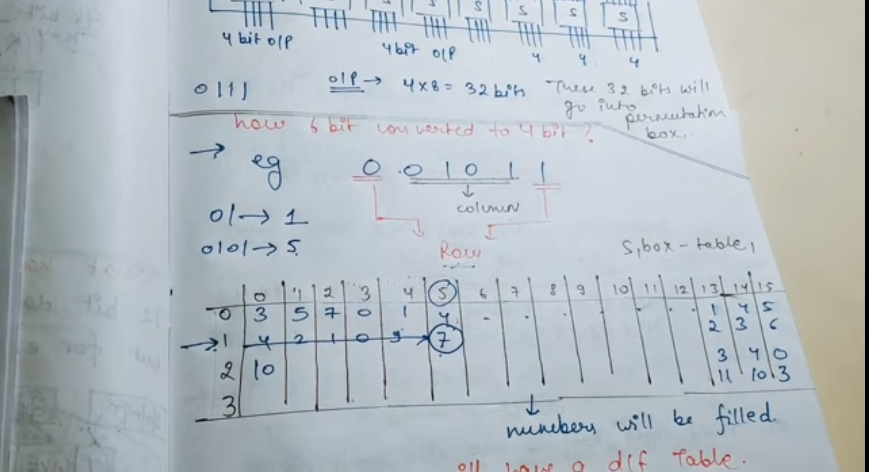 S S S S S
4 bit O/P 4 bit O/P 4 4 4
0111 O/P → 4x8 = 32 bits These 32 bits will
go into
permutation
box.
how 6 bit converted to 4 bit?
→ eg 0 0 1 0 1 1
column
01 → 1
0101 → 5
Row S,box-table,
0 1 2 3 4 5 6 7 8 9 10 11 12 13 14 15
0 3 5 7 0 1 4 . . . . . . 1 4 5
→ 1 4 2 1 0 3 7 2 3 6
2 10 3 4 0
11 10 3
3
numbers will be filled.
have a dif Table.